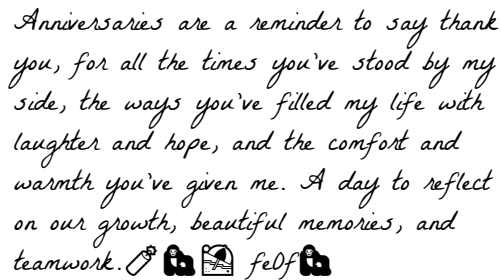 Anniversaries are a reminder to say thank
you, for all the times you've stood by my
side, the ways you've filled my life with
laughter and hope, and the comfort and
warmth you've given me. A day to reflect
on our growth, beautiful memories, and
teamwork.🧨🤱🏖 fe0f🤱